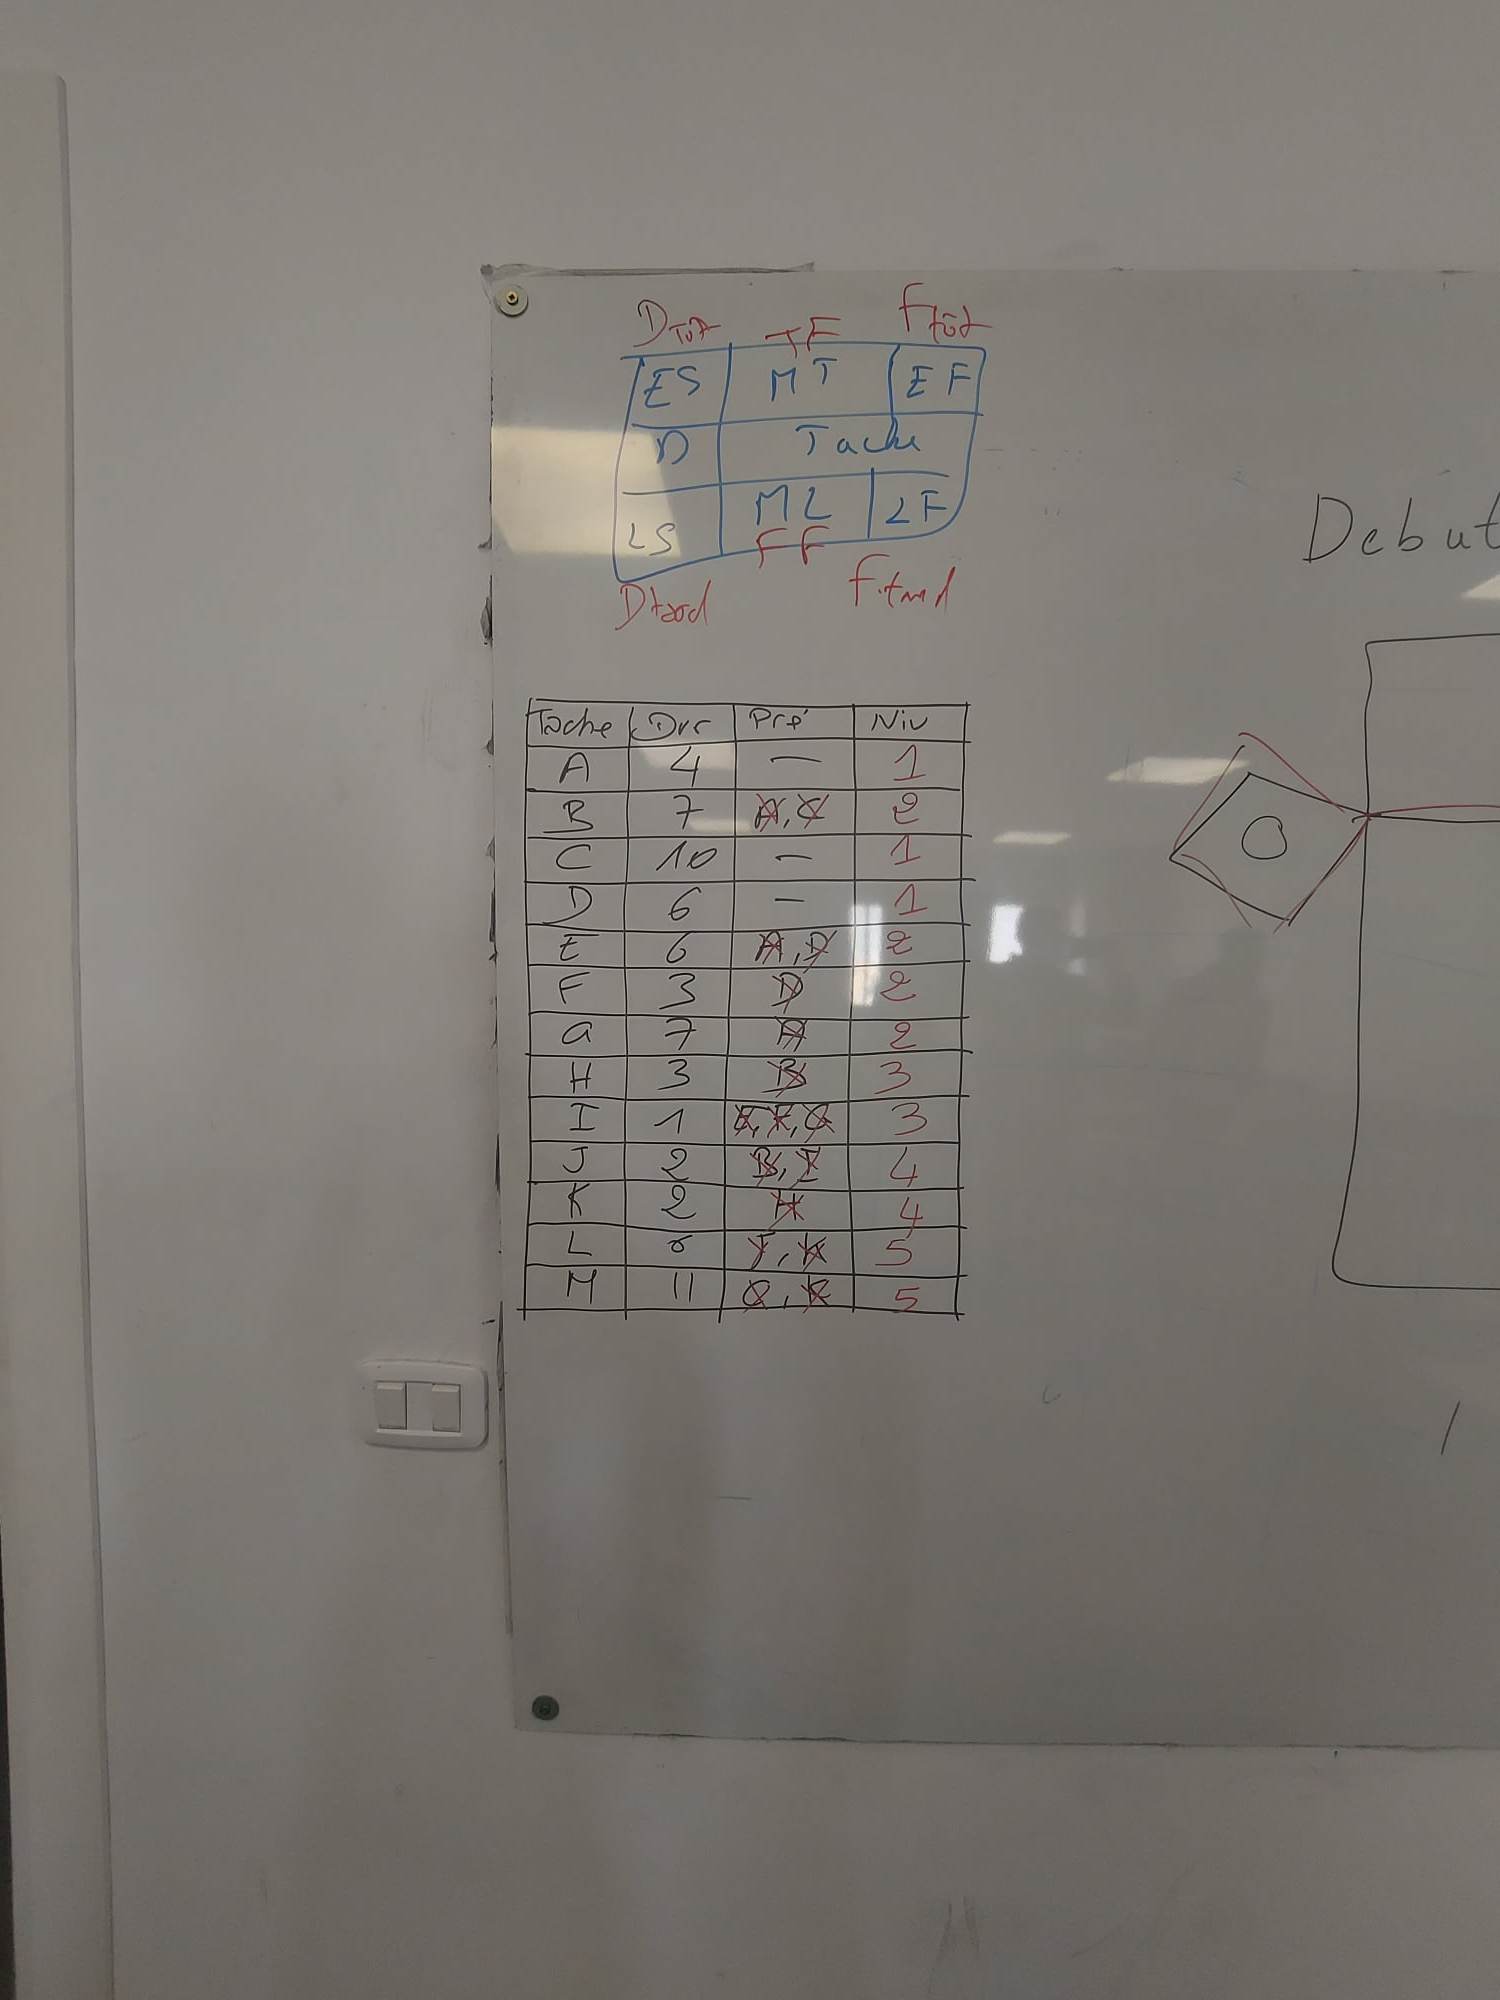 DTOT TF Ftôt
ES MT EF
D Tache
LS ML LF
FF
Dtard F.tard
Debut
Tache Dur Pré Niv
A 4 — 1
B 7 A, C 2
C 10 — 1
D 6 — 1
E 6 A, D 2
F 3 D 2
G 7 A 2
H 3 B 3
I 1 E, F, G 3
J 2 B, I 4
K 2 H 4
L J, K 5
M 11 K 5